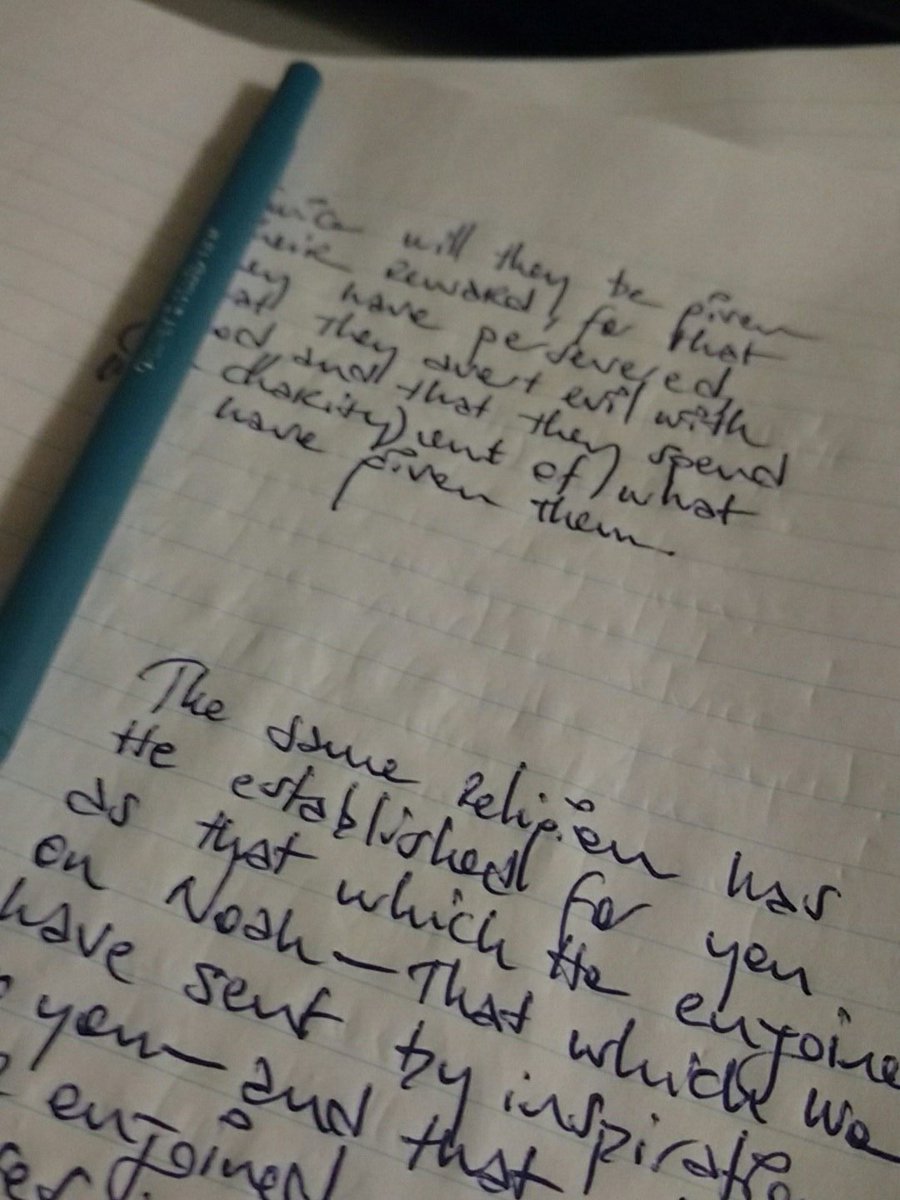 will they be given
reward, for that
have persevered,
they avert evil with
and that they spend
charity) out of what
have given them.
The same religion has
He established for you
as that which He enjoine
on Noah—That which We
have sent by inspiratio
you—and that
enjoined